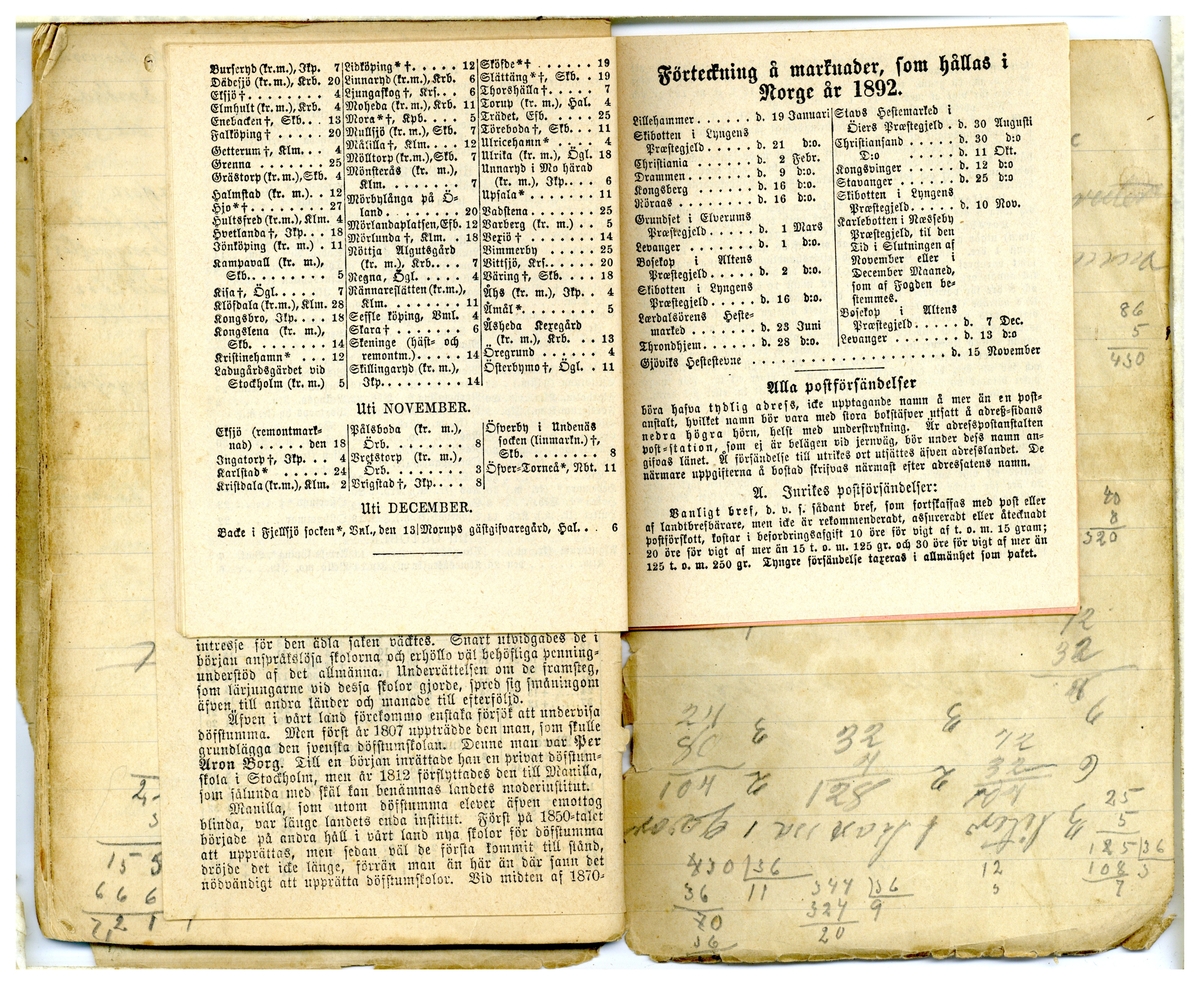 Burseryd (kr.m.), Jkp. 7
Dädesjö (kr.m.), Krb. 20
Eksjö † . . . . . . . . 4
Elmhult (kr.m.), Krb. 4
Enebacken †, Skb. . . 13
Falköping † . . . . . 20
Getterum †, Klm. . . 4
Grenna . . . . . . . 25
Grästorp (kr.m.), Skb. 4
Halmstad (kr. m.) . . 12
Hjo * † . . . . . . . 27
Hultsfred (kr.m.), Klm. 4
Hvetlanda †, Jkp. . . 18
Jönköping (kr. m.) . 11
Kampavall (kr. m.),
Skb. . . . . . . . . 5
Kisa †, Ögl. . . . . . 7
Klösdala (kr.m.), Klm. 28
Kongsbro, Jkp. . . . 18
Kongslena (kr. m.),
Skb. . . . . . . . . 14
Kristinehamn * . . . 12
Ladugårdsgärdet vid
Stockholm (kr. m.) 5
Lidköping * † . . . . . 12
Linnaryd (kr.m.), Krb. 6
Ljungaskog †, Krs. . . 6
Moheda (kr. m.), Krb. 11
Mora * †, Kpb. . . . . 5
Mullsjö (kr. m.), Skb. 7
Målilla †, Klm. . . . 12
Mölltorp (kr.m.), Skb. 7
Mönsterås (kr. m.),
Klm. . . . . . . . . 7
Mörbylånga på Ö-
land . . . . . . . . 20
Mörlandaplatsen, Gfb. 12
Mörlunda †, Klm. . . 18
Nöttja Algutsgård
(kr. m.), Krb. . . . 7
Regna, Ögl. . . . . . 4
Rännareslätten (kr.m.),
Klm. . . . . . . . . 11
Seffle köping, Vml. . 4
Skara † . . . . . . . 6
Skeninge (häst- och
remontm.) . . . . . 14
Skillingaryd (kr. m.),
Jkp. . . . . . . . . 14
Sköfde * † . . . . . . 19
Slättäng * †, Skb. . . 19
Thorshälla † . . . . . 7
Torup (kr. m.), Hal. . 4
Trädet, Efb. . . . . . 25
Töreboda †, Skb. . . . 11
Ulricehamn * . . . . . 4
Ulrika (kr. m.), Ögl. 18
Unnaryd i Mo härad
(kr. m.), Jkp. . . . 6
Upsala * . . . . . . . 11
Vadstena . . . . . . 25
Varberg (kr. m.) . . . 5
Vexiö † . . . . . . . 14
Vimmerby . . . . . . 25
Vittsjö, Krs. . . . . . 20
Väring †, Skb. . . . . 18
Åhs (kr. m.), Jkp. . . 4
Åmål * . . . . . . . . 5
Åsheda Kexegård
(kr. m.), Krb. . . . 13
Öregrund . . . . . . 4
Österbymo †, Ögl. . . 11
Uti NOVEMBER.
Eksjö (remontmark-
nad) . . . . . den 18
Ingatorp †, Jkp. . . . 4
Karlstad * . . . . . . 24
Kristdala (kr.m.), Klm. 2
Pålsboda (kr. m.),
Örb. . . . . . . . . 8
Vretstorp (kr. m.),
Örb. . . . . . . . . 3
Vrigstad †, Jkp. . . . 8
Öfverby i Undenäs
socken (linmarkn.) †,
Skb. . . . . . . . . 8
Öfver-Torneå *, Nbt. 11
Uti DECEMBER.
Backe i Fjellsjö socken *, Vnl., den 13
Norups gästgifvaregård, Hal. . . 6
intresse för den ädla saken väcktes. Snart utvidgades de i
början anspråkslösa skolorna och erhöllo väl behöfliga penning-
understöd af det allmänna. Underrättelsen om de framsteg,
som lärjungarne vid dessa skolor gjorde, spred sig småningom
äfven till andra länder och manade till efterföljd.
Äfven i vårt land förekommo enstaka försök att undervisa
döfstumma. Men först år 1807 uppträdde den man, som skulle
grundlägga den svenska döfstumskolan. Denne man var Per
Aron Borg. Till en början inrättade han en privat döfstum-
skola i Stockholm, men år 1812 förflyttades den till Manilla,
som sålunda med skäl kan benämnas landets moderinstitut.
Manilla, som utom döfstumma elever äfven emottog
blinda, var länge landets enda institut. Först på 1850-talet
började på andra håll i vårt land nya skolor för döfstumma
att upprättas, men sedan väl de första kommit till stånd,
dröjde det icke länge, förrän man än här än där fann det
nödvändigt att upprätta döfstumskolor. Vid midten af 1870-
Förteckning å marknader, som hållas i
Norge år 1892.
Lillehammer . . . . . . d. 19 Januari
Skibotten i Lyngens
Præstegjeld . . . . . d. 21 d:o.
Christiania . . . . . . d. 2 Febr.
Drammen . . . . . . . d. 9 d:o.
Kongsberg . . . . . . d. 16 d:o.
Röraas . . . . . . . . d. 16 d:o.
Grundset i Elverums
Præstegjeld . . . . . d. 1 Mars
Levanger . . . . . . . d. 1 d:o.
Bosekop i Altens
Præstegjeld . . . . . d. 2 d:o.
Skibotten i Lyngens
Præstegjeld . . . . . d. 16 d:o.
Lærdalsörens Heste-
marked . . . . . . . d. 23 Juni
Throndhjem . . . . . . d. 28 d:o.
Stavs Hestemarked i
Öiers Præstegjeld . d. 30 Augusti
Christiansand . . . . . d. 30 d:o
D:o . . . . . . d. 11 Okt.
Kongsvinger . . . . . d. 12 d:o
Stavanger . . . . . . d. 25 d:o
Skibotten i Lyngens
Præstegjeld . . . . . d. 10 Nov.
Karlebotten i Næsseby
Præstegjeld, til den
Tid i Slutningen af
November eller i
December Maaned,
som af Fogden be-
stemmes.
Bosekop i Altens
Præstegjeld . . . . . d. 7 Dec.
Levanger . . . . . . . d. 13 d:o
Gjöviks Hestestevne . . . . . . . . . . . . . . . d. 15 November
Alla postförsändelser
böra hafva tydlig adress, icke upptagande namn å mer än en post-
anstalt, hvilket namn bör vara med stora bokstäfver utsatt å adreß-sidans
nedra högra hörn, helst med understrykning. Är adresspostanstalten
post-station, som ej är belägen vid jernväg, bör under dess namn an-
gifvas länet. Å försändelse till utrikes ort utsättes äfven adresslandet. De
närmare uppgifterna å bostad skrifvas närmast efter adressatens namn.
A. Inrikes postförsändelser:
Vanligt bref, d. v. s. sådant bref, som fortskaffas med post eller
af landtbrefbärare, men icke är rekommenderadt, assureradt eller åtecknadt
postförskott, kostar i befordringsafgift 10 öre för vigt af t. o. m. 15 gram;
20 öre för vigt af mer än 15 t. o. m. 125 gr. och 30 öre för vigt af mer än
125 t. o. m. 250 gr. Tyngre försändelse taxeras i allmänhet som paket.
86
5
430
40
8
320
12
32
25
5
185 36
108 5
7
12
830 36
36 11
70
36
344 36
324 9
20
15 5
6 6 6